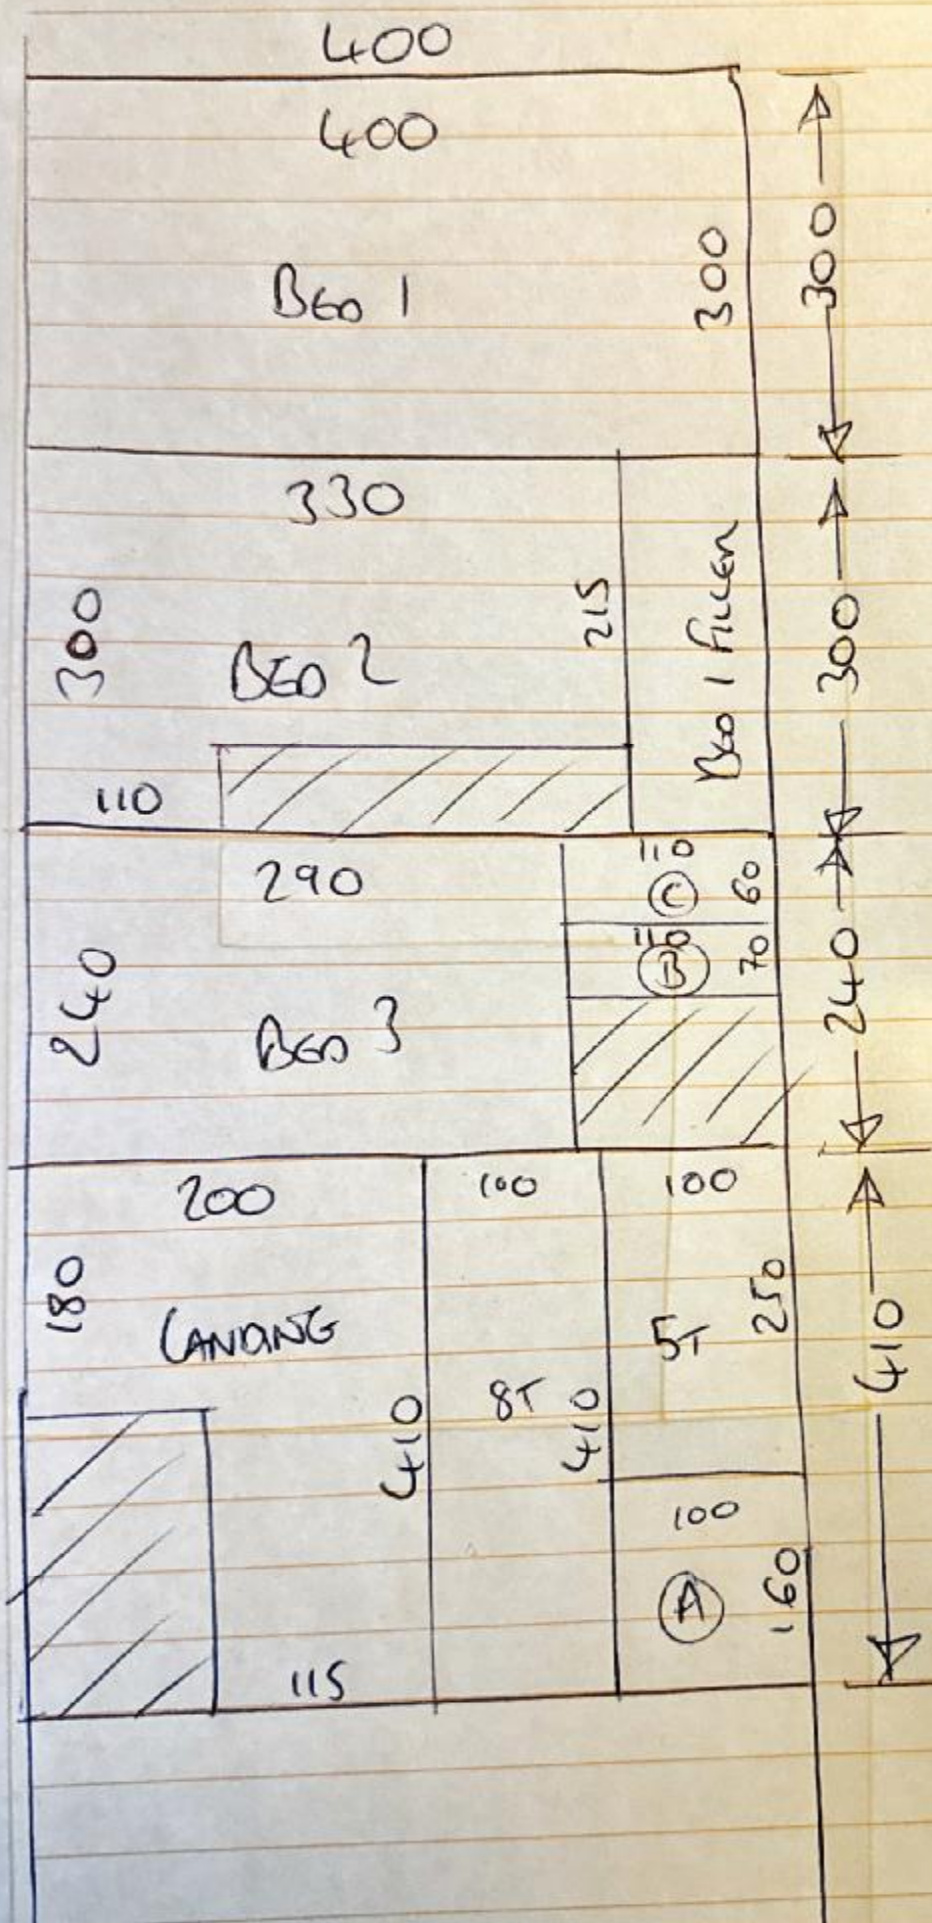 400
400
BED 1
300
300
330
300
BED 2
215
BED 1 FILLER
300
110
290
110
C
60
110
B
70
240
BED 3
240
200
100
100
180
LANDING
410
8T
410
5T
250
410
100
A
160
115